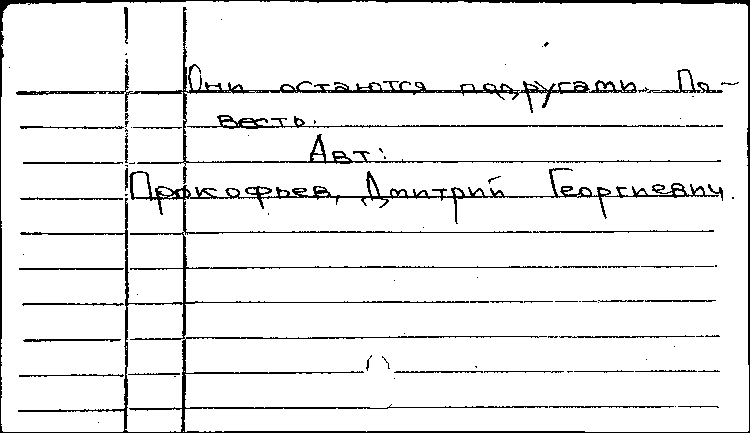 Они остаются подругами. По-
весть.
Авт:
Прокофьев, Дмитрий Георгиевич.